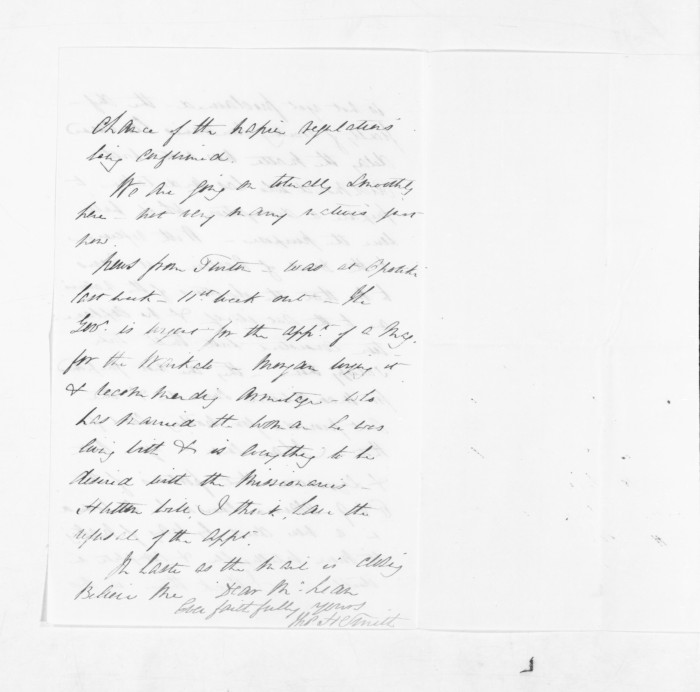 Chance of the Napier regulations
being confirmed.
We are going on steadily & smoothly
here not very many natives just
now.
News from Turton - was at Opotiki
last week - 11th week out - The
Govr. is urgent for the appt. of a Mag.
for the Waikato - Morgan urging it
& recommending Armitage - who
has married the woman he was
living with & is everything to be
desired with the Missionaries
Hutton will, I think, have the
refusal of the appt.
In haste as the mail is closing
Believe me Dear McLean
Ever faithfully yours
Thos H Smith